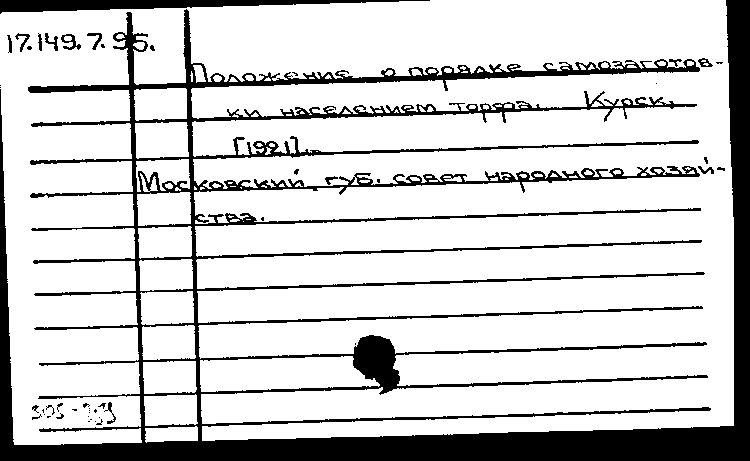 17.149.7.95.
Положение о порядке самозаготов-
ки населением торфа. Курск,
[1921].
Московский губ. совет народного хозяй-
ства.